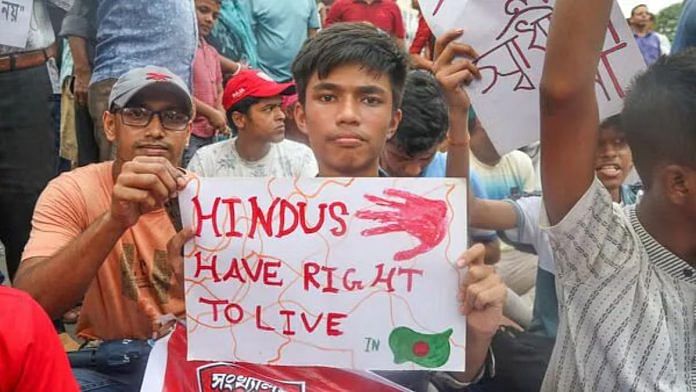 নয়'
HINDUS
HAVE RIGHT
TO LIVE
IN